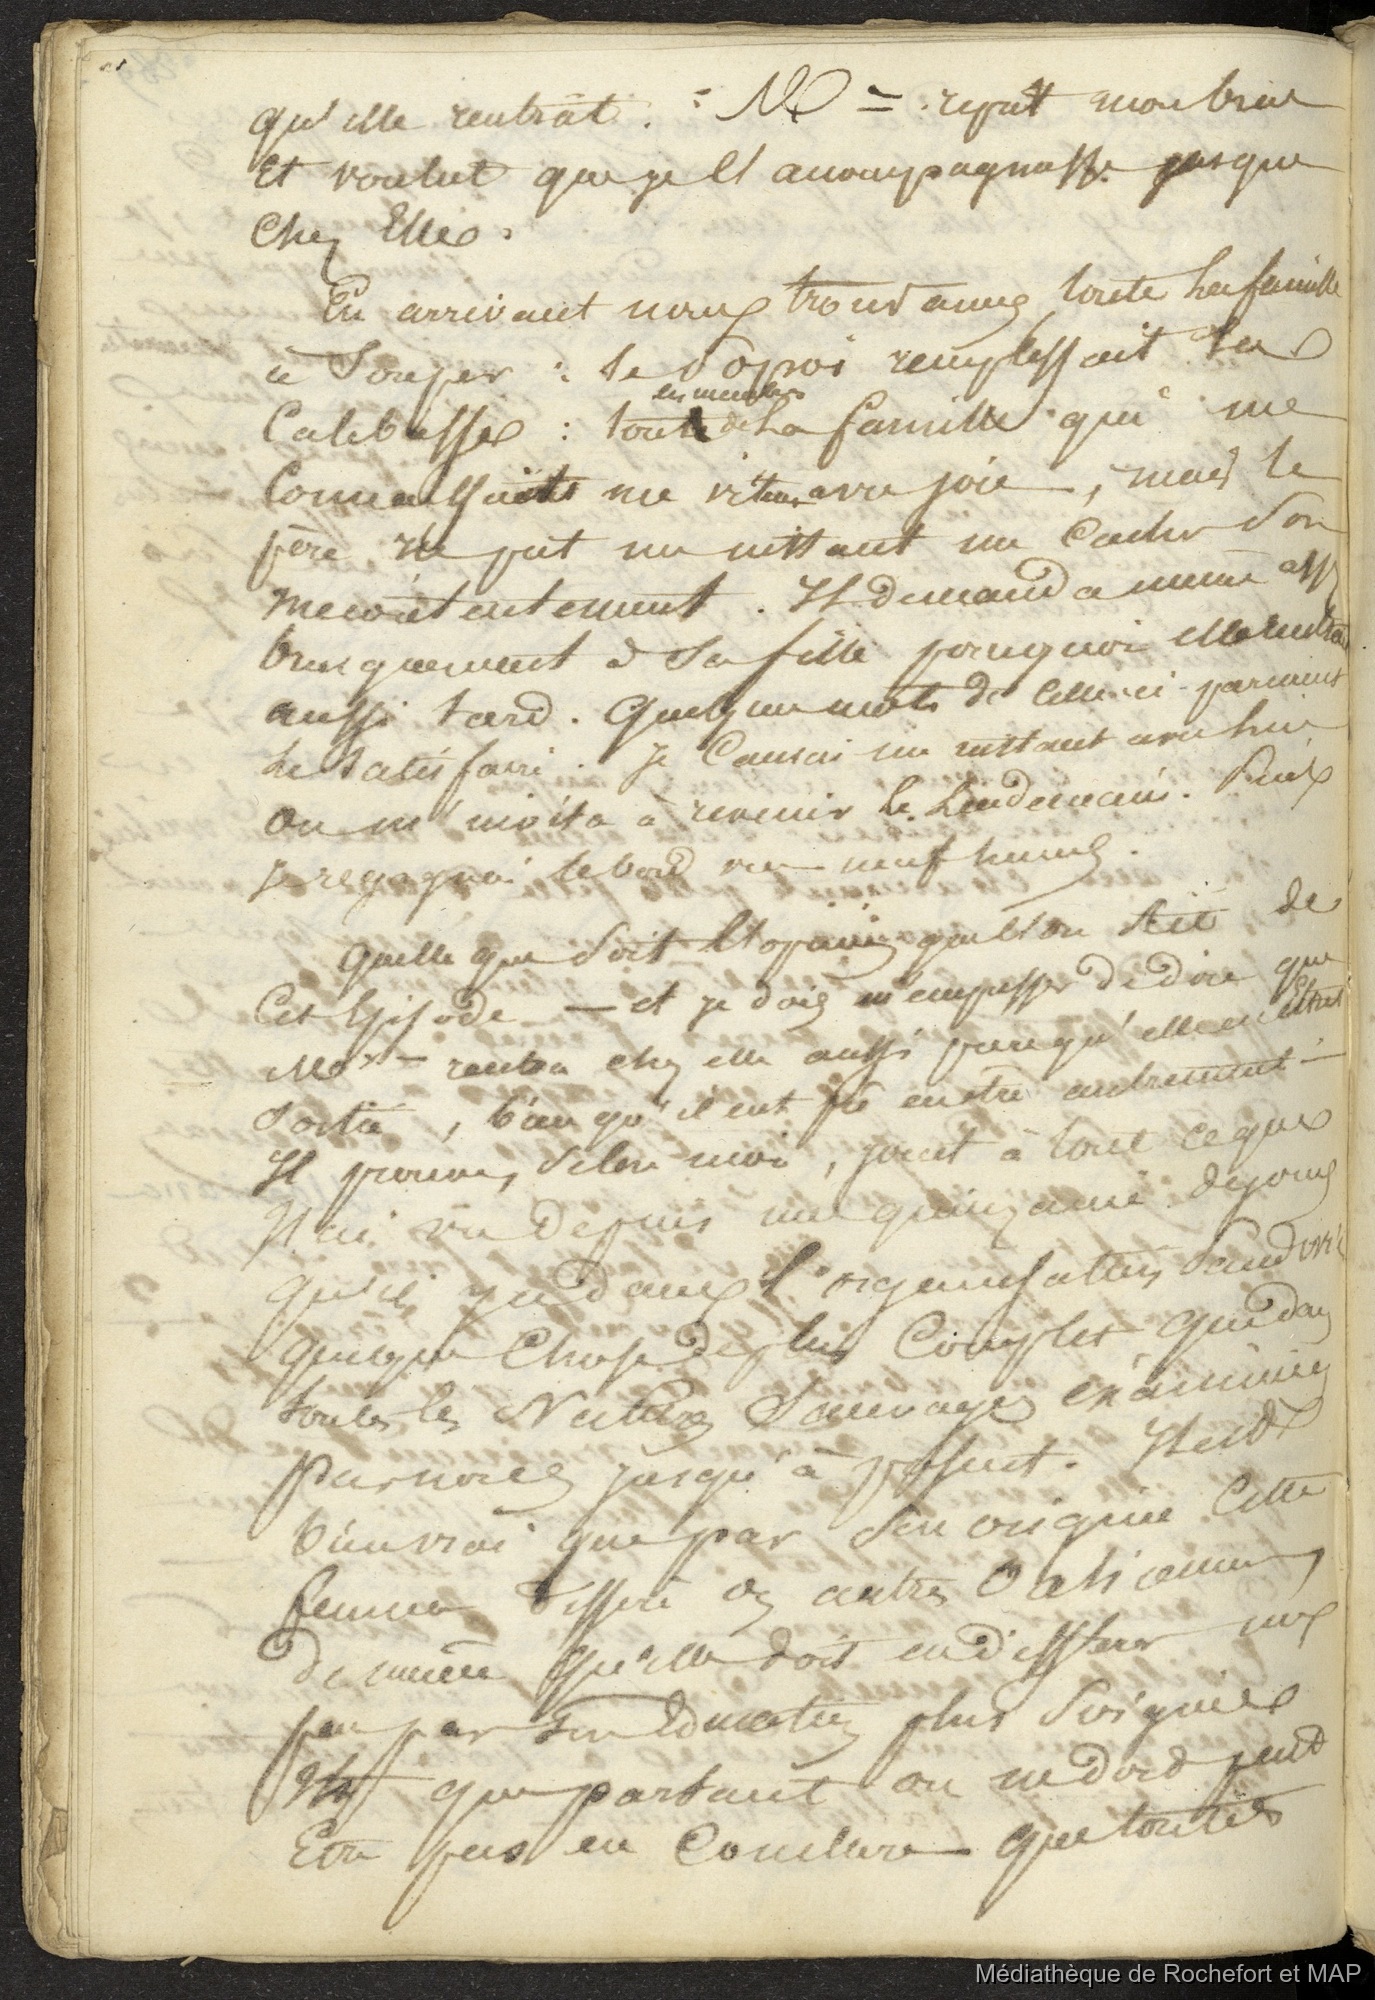 qu'elle rentrât. : No = reprit mon bras
Et voulut que je l'accompagnasse jusque
Chez Elle.
En arrivant nous trouvames toute la famille
à Souper : le Popoi remplissait les
Calebasses :
en membres
toute de la famille qui me
Connaissaient me virent avec joie, mais le
père ne put un instant me Cacher Son
mecontentement. Il demanda même assez
brusquement à Sa fille pourquoi elle rentrait
aussi tard. Quelques mots de celle-ci parurent
le satisfaire. Je Causai un instant avec lui.
On m'invita à revenir le lendemain. Puis
Je regagnai le bord vers neuf heures.
Quelle que Soit l'opinion que l'on ait de
Cet Episode — et je dois m'empresser de dire que
No — rentra chez elle aussi pure qu'elle en était
Sortie, bien qu'il eut pu en être autrement —
Il prouve, Selon moi, joint à tout ce que
J'ai vu depuis une quinzaine de jours
qu'il y a dans l'organisation
quelque Chose de plus Complet que dans
toutes les Natures Sauvages examinées
par nous jusqu'à présent. Il est
bien vrai que par Son origine Cette
femme diffère des autres
de même qu'elle doit en différer un
peu par Son Education plus Soignée
et que partant on ne doit peut
Etre pas en Conclure que toutes
Médiathèque de Rochefort et MAP